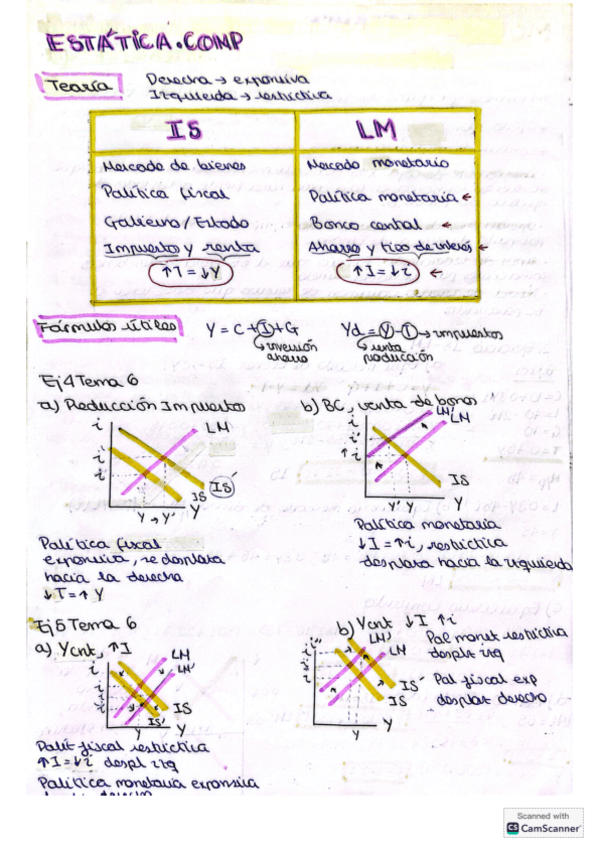 ESTÁTICA.COMP
Teoría
Derecha → expansiva
Izquierda → restrictiva
IS
LM
Mercado de bienes
Mercado monetario
Política fiscal
Política monetaria ←
Gobierno/Estado
Banco central ←
Impuestos y renta
Ahorro y tipo de interés ←
↑T = ↓Y
↑I = ↓i ←
Fórmulas útiles
Y = C + I + G
inversión
ahorro
Yd = Y - T → impuestos
renta
producción
Ej 4 Tema 6
a) Reducción Impuestos
b) BC, venta de bonos
i
LM
i'
i
IS
IS'
Y → Y'
Y
i
LM'
LM
i'
↑i
IS
Y' Y
Y
Política fiscal
expansiva, se desplaza
hacia la derecha
↓T = ↑Y
Política monetaria
↓I = ↑i, restrictiva
desplaza hacia la izquierda
Ej 5 Tema 6
a) Ycnt, ↑I
b) Ycnt ↓I ↑i
Pol monet restrictiva
despl izq
Pol fiscal exp
desplaz derecho
i
LM
LM'
IS
IS'
Y
Y
LM'
LM
IS'
IS
Y
Y
Polit fiscal restrictiva
↑I = ↓i despl izq
Política monetaria expansiva
Scanned with
CS CamScanner